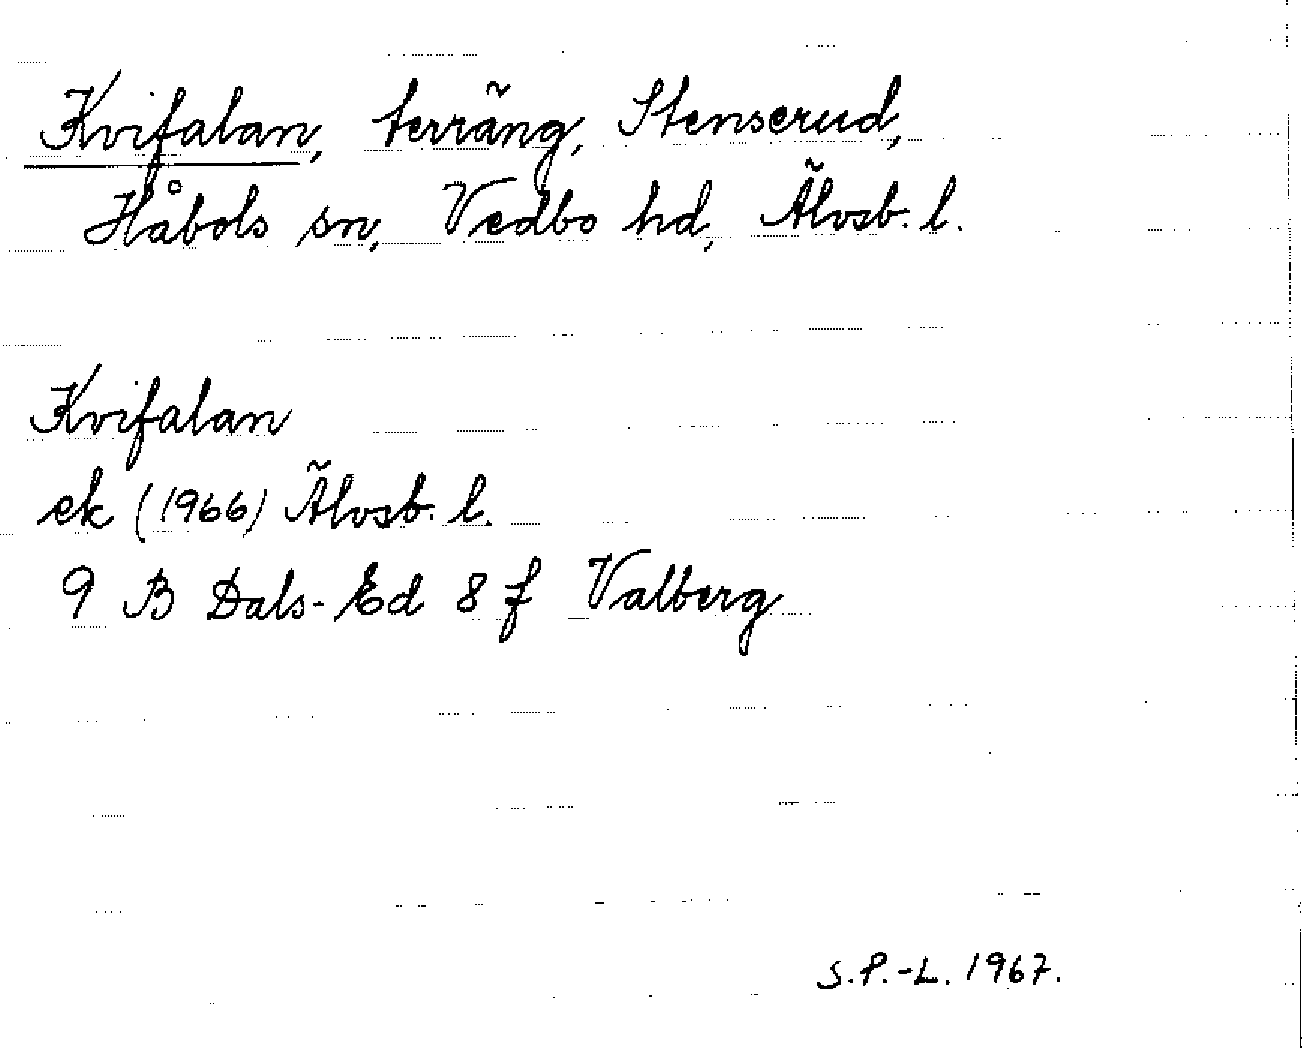 Kvifalan, terräng, Stenserud,
Håbols sn, Vedbo hd, Älvsb. l.
Kvifalan
ek (1966) Älvsb. l.
9 B Dals-Ed 8 f Valberg
S.P.-L. 1967.